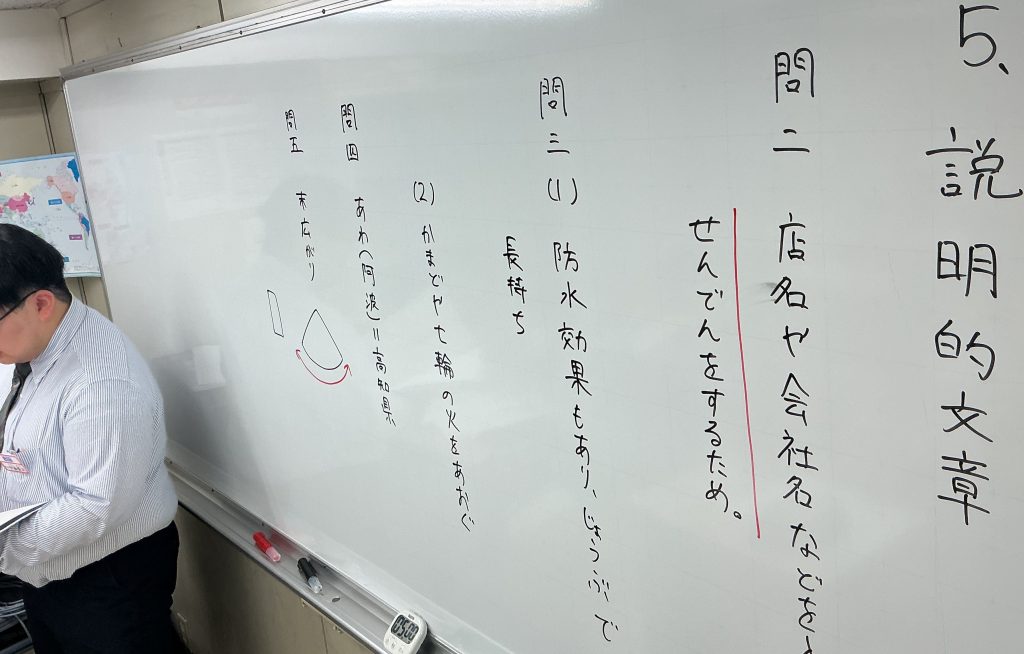 5、説明的文章
問二 店名や会社名などを
せんでんをするため。
問三 (1) 防水効果もあり、じょうぶで
長持ち
(2) かまどや七輪の火をあおぐ
問四 あわ(阿波)=高知県
問五 末広がり
05:00